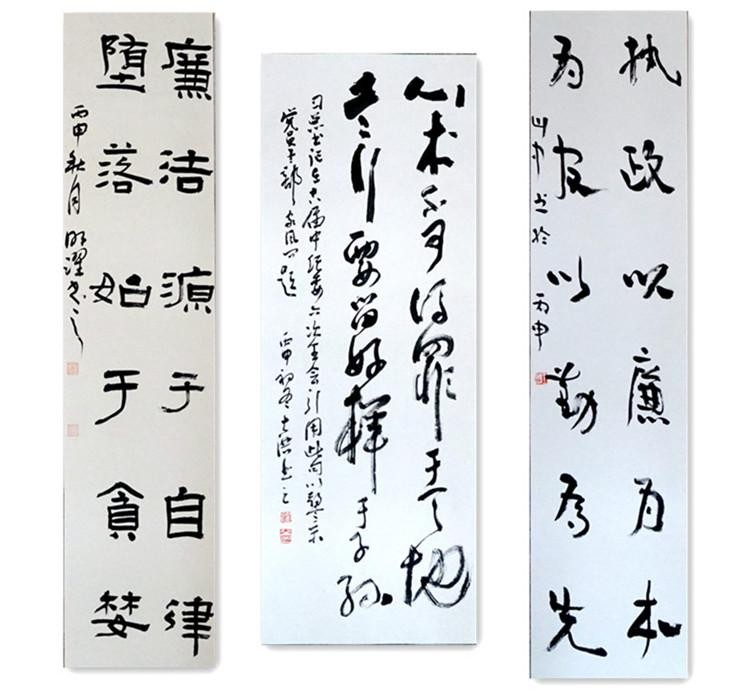 执政以廉为本
为官以勤为先
书於丙申
心术不可得罪于天地
言行要留好样于子孙
习总书记在十八届中纪委六次全会引用此句以警示
党员干部家风问题 丙申初冬
廉洁源于自律
堕落始于贪婪
丙申秋月